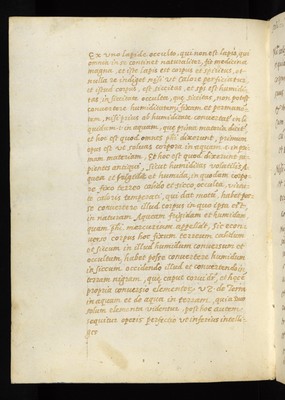 Ex vno lapide occulto, qui non est lapis, qui
omnia in se continet naturalitер, fit medicina
magna, et iste lapis est corpus et spiritus, et
nulla re indiget nisi vt calore perficiatur,
et istud corpus, est siccitas, et spiritus est humidi-
tas in siccitate occulta, que siccitas, non potest
conuertere humiditatem fixam et permanen-
tem, nisi prius ab humiditate conuertatur in li
quidum et in aquam, que prima materia dicitur
et hoc est quod omnes phi. dixerunt, primum
opus est vt soluas corpora in aquam et in pri-
mam materiam. Et hoc est quod dixerunt sa-
pientes antiqui, sicut humiditas volatilis, A-
quea et frigida et humida, in quodam corpo-
re fixo terreo calido et sicco, occulta, virtu-
te caloris temperati, qui dat motum, habet pos-
se conuertere illud corpus in quo ipsa est,
in naturam Aquam frigidam et humidam
quam phi. mercurium appellant, Sic e con-
uerso corpus hoc fixum terreum, calidum
et siccum in illud humidum conuersum et
occultum, habet posse conuertere humidum
in siccum occidendo illud et conuertendo in
terram nigram, que caput corui dicitur, et hec est
propria conuersio elementorum, vz. de Terra
in aquam et de aqua in terram, quia duo
tolum elementa videntur. post hoc autem
sequitur operis perfectio vt inferius intelli-
ges